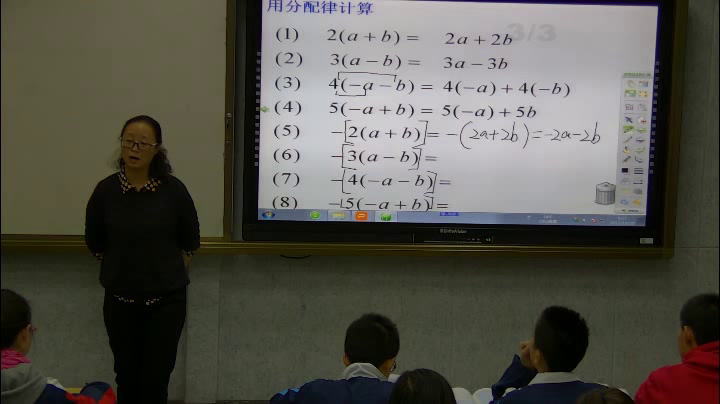 用分配律计算
3/3
(1) 2(a+b)= 2a+2b
(2) 3(a-b)= 3a-3b
(3) 4(-a-b)=4(-a)+4(-b)
(4) 5(-a+b)=5(-a)+5b
(5) -[2(a+b)]=-(2a+2b)=-2a-2b
(6) -[3(a-b)]=
(7) -[4(-a-b)]=
(8) -[5(-a+b)]=